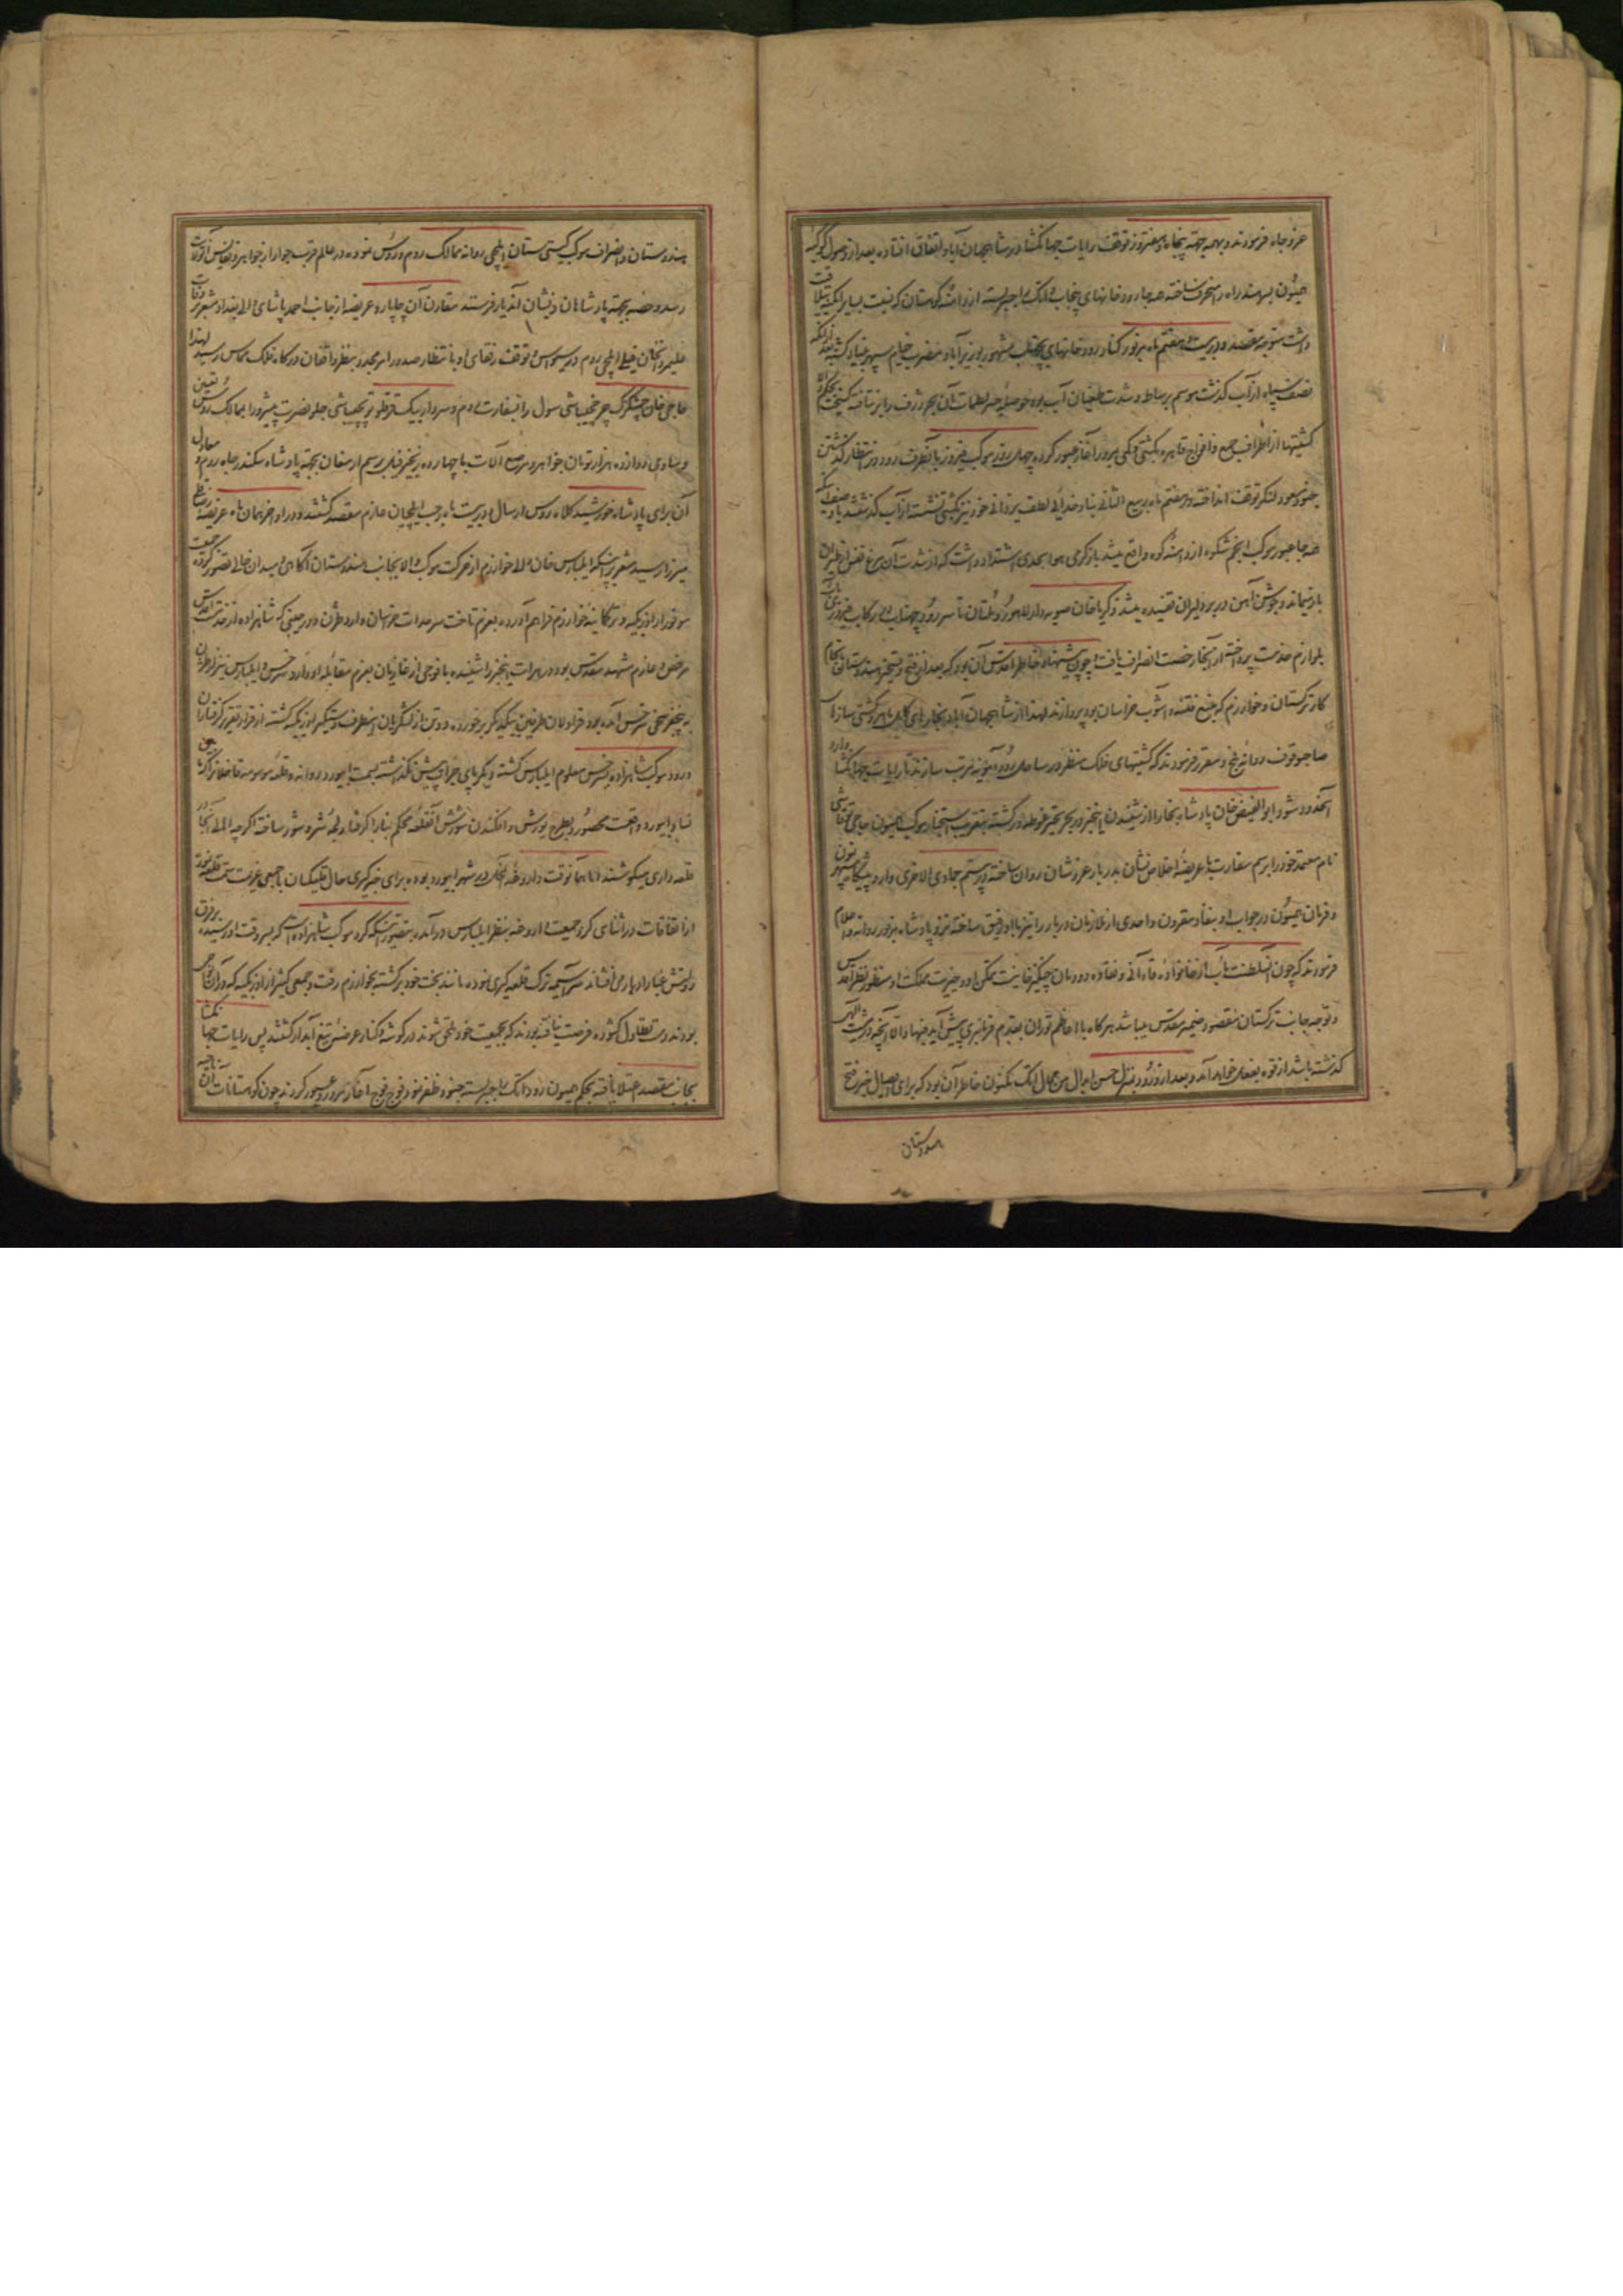 عز و جاه فرمودند و بهمه جهة پنجاه و هفتروز توقف رایات جهانگشا در شاهجهان آباد اتفاق افتاده بعد از وصول کوکبه
همیون بسهند راه را منحرف ساخته همه جا رودخانهای پنجاب و اتک را جسر بسته از دامنه کوهستان که نسبت بسایر امکنه ییلاقیت
داشت متوجه مقصد و در بیست و هفتم ماه مزبور کنار رودخانهای چناب مشهور بوزیرآباد مضرب خیام سپهر بنیاد گشته بعد از آنکه
نصف سپاه از آب گذشت موسم برسات و شدت طغیان آب بوده حوصله جسر لطمات آن بحر ژرف را بر نتافته گسیخت بحکم والا
کشتیها از اطراف جمع و افواج قاهره بکشتی و کمی بمرور آغاز عبور کرده چهل روز موکب فیروز با آنطرف رود در انتظار گذشتن
جنود مسعود لنگر توقف انداخته در هفتم ماه ربیع الثانی بناء خدائی لطف یزدانی خود نیز بکشتی نشسته از آب گذشتند با وصف اینکه
همه جا عبور موکب انجم شکوه از دامنه کوه واقع میشد باز گرمی هوا بحدی اشتداد داشت که از شدت آن مرغ نفس از طیران
باز میماند و جوشن آهن در بر دلیران تفسیده میشد زکریا خان صوبه دار لاهور و ملتان تا سر رود چناب در رکاب فیروزی مآب
بلوازم خدمت پرداخته از آنجا رخصت انصراف یافت و چون پیشنهاد خاطر اقدس آن بود که بعد از فتح و تسخیر هندوستان بانجام
کار ترکستان و خوارزم که منبع فتنه و آشوب خراسان بود پردازند لهذا از شاهجهان آباد نجارهای کامل ماهر و کشتی سازان
صاحبوقوف روانه بلخ و مقرر فرمودند که کشتیهای فلک منظر در ساحل رود آمویه مرتب سازند تا رایات جهانگشا وارد
آنحدود شود ابوالفیض خان پادشاه بخارا از شنیدن اینخبر در بحر تحیر غوطه ور گشته بتقریب استخبار موکب همیون حاجی توقاشی
نام معتمد خود را برسم سفارت با عریضه اخلاص نشان بدربار عز و شان روان ساخته در بیستم جمادی الاخری وارد پیشگاه سپهر نمون
و فرمان همیون در جواب او بنفاذ مقرون و احدی از ملازمان دربار را نیز با او رفیق ساخته نزد پادشاه مزبور روانه و اعلام
فرمودند که چون آنسلطنت مآب از خانواده قاءآنی و نقاوه دودمان چنگیز خانیست تمکن او و خیریت مملکت او منظور نظر اقدس
و توجه جانب ترکستان مقصود ضمیر مقدس میباشد هر گاه با اعاظم توران بقدم فرمانبری پیش آید فبها و الا آنچه در مشیت الهی
گذشته باشد از قوه بفعل خواهد آمد و بعد از ورود بمنزل حسن ابدال من اعمال اتک مکنون خاطر آن بود که برای ایصال خبر فتح
هندوستان
هندوستان و انصراف موکب گیتی ستان ایلچی روانه ممالک روم و روس نموده در عالم قرب جوار از جواهر و نفایس آنولایت
رسد و حصه بجهة پادشاهان ذیشان آندیار فرستند مقارن آن چاپار و عریضه از جانب احمد پاشای والی بغداد مشعر بر وفات
علیمردانخان فیلی ایلچی روم در سیواس و توقف رفقای او با انتظار صدور امر مجدد بنظر واقفان درگاه فلک مماس رسید لهذا
حاجی خان چمشگزک چرخچیباشی سول را بسفارت روم و سردار بیک قرقلو توپچیباشی جلو نصرت پیشرو را بممالک روس تعیین
و مساوی دوازده هزار تومان جواهر و مرصع آلات با چهارده زنجیر فیل برسم ارمغان بجهة پادشاه سکندر جاه روم و معادل
آن برای پادشاه خورشید کلاه روس ارسال و در بیست ماه رجب ایلچیان عازم مقصد گشتند و در اواخر همان ماه عریضه رضا قلی
میرزا رسید مشعر بر اینکه ایلبارس خان والی خوارزم از حرکت موکب والا بجانب هندوستان آگاهی و میدان خالی تصور کرده جمعیت
موفور از اوزبکیه و ترکمانیه خوارزم فراهم آورده بعزم تاخت سرحدات خراسان وارد طژن و در حینی که شاهزاده از خدمت اقدس
مرخص و عازم مشهد مقدس بود در هرات اینخبر را شنیده با فوجی از غازیان بعزم مقابله او وارد سرخس و ایلبارس نیز از طژن
به پنجفرسخی سرخس آمده بود قراولان طرفین بیکدیگر برخورده دو تن از لشکریان اینطرف دستگیر اوزبکیه گشته از قرار تقریر گرفتاران
ورود موکب شاهزاده بسرخس معلوم ایلبارس گشته دیگر پای جرات پیش نگذاشته بسمت ابیورد روانه و قلعه موسومه بقاخلان را که
نسا و ابیورد واقعست محصور و بطرح یورش و افکندن شورش آنقلعه محکم بنا را گرفتار لجه شر و شور ساخته اگرچه اهالی آنجا در
قلعه داری میکوشیدند اما همانوقت داروغه آنجا که در شهر ابیورد بوده برای خبرگیری حال قلیکیان با جمعی عزیمت سمت قلعه نموده
از اتفاقات در اثنای گرد جمعیت داروغه بنظر ایلبارس در آمده بتصور اینکه گرد موکب شاهزاده است که بسر وقت او رسیده بر فرق
دولتش غبار ادبار می افشاند سراسیمه ترک قلعه گیری نموده مانند بخت خود برگشته بخوارزم رفت و جمعی کثیر از اوزبکیه که در آن نواحی
بودند دست تطاول گشوده فرصت نیافته بودند که بجمعیت خود ملحق شوند در گوشه و کنار عرضه تیغ آبدار گشتند پس رایات جهانگشا
بجانب مقصد اعتلا یافته بحکم همیون رود اتک را جسر بسته جنود ظفر نمود فوج فوج آغاز مرور و عبور کردند چون کوهستانات آن ناحیه